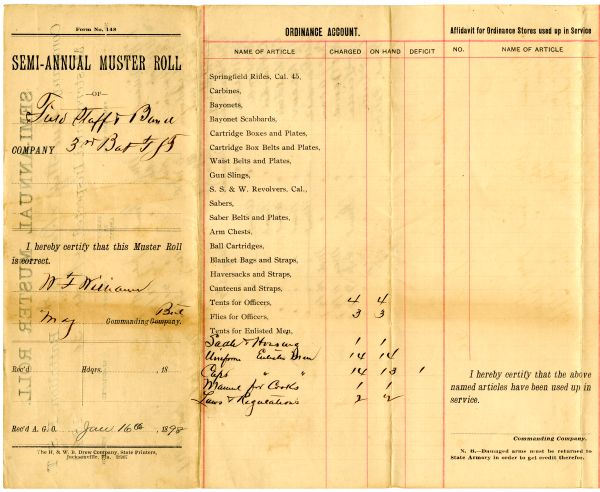 Form No. 148
SEMI-ANNUAL MUSTER ROLL
—OF—
Field Staff & Band
COMPANY 3rd Bat F S T
I hereby certify that this Muster Roll
is correct.
W F Williams
Maj Commanding Company. Bat
Rec'd Hdqrs. , 18
Rec'd A. G. O. Jan 16th , 1898
The H. & W. B. Drew Company, State Printers,
Jacksonville, Fla.
ORDINANCE ACCOUNT.
NAME OF ARTICLE CHARGED ON HAND DEFICIT
Springfield Rifles, Cal. 45,
Carbines,
Bayonets,
Bayonet Scabbards,
Cartridge Boxes and Plates,
Cartridge Box Belts and Plates,
Waist Belts and Plates,
Gun Slings,
S. S. & W. Revolvers, Cal.,
Sabers,
Saber Belts and Plates,
Arm Chests,
Ball Cartridges,
Blanket Bags and Straps,
Haversacks and Straps,
Canteens and Straps,
Tents for Officers, 4 4
Flies for Officers, 3 3
Tents for Enlisted Men,
Sadle & Housing 1 1
Uniform Enlisted Men 14 14
Caps " " 14 13 1
Manual for Cooks 1 1
Laws & Regulations 2 2
Affidavit for Ordinance Stores used up in Service
NO. NAME OF ARTICLE
I hereby certify that the above
named articles have been used up in
service.
Commanding Company.
N. B.—Damaged arms must be returned to
State Armory in order to get credit therefor.
SEMI-ANNUAL MUSTER ROLL.